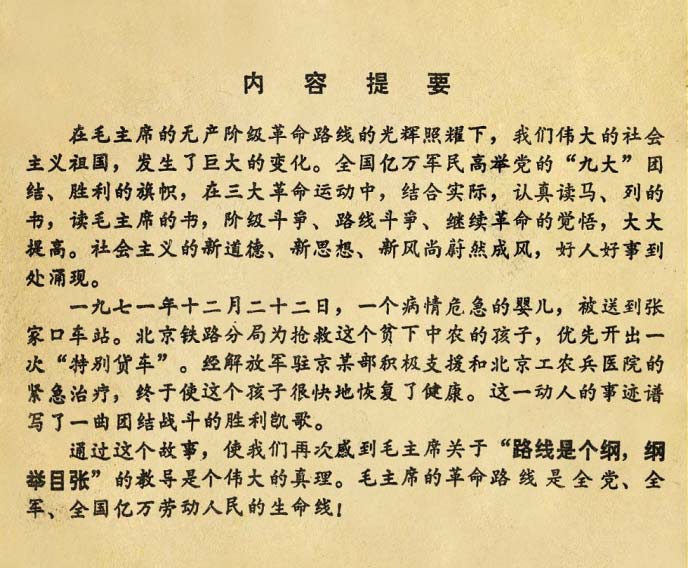 内容提要
在毛主席的无产阶级革命路线的光辉照耀下，我们伟大的社会
主义祖国，发生了巨大的变化。全国亿万军民高举党的“九大”团
结、胜利的旗帜，在三大革命运动中，结合实际，认真读马、列的
书，读毛主席的书，阶级斗爭、路线斗爭、继续革命的觉悟，大大
提高。社会主义的新道德、新思想、新风尚蔚然成风，好人好事到
处涌现。
一九七一年十二月二十二日，一个病情危急的婴儿，被送到张
家口车站。北京铁路分局为抢救这个贫下中农的孩子，优先开出一
次“特别货车”。经解放军驻京某部积极支援和北京工农兵医院的
紧急治疗，终于使这个孩子很快地恢复了健康。这一动人的事迹谱
写了一曲团结战斗的胜利凯歌。
通过这个故事，使我们再次感到毛主席关于“路线是个纲，纲
举目张”的教导是个伟大的真理。毛主席的革命路线是全党、全
军、全国亿万劳动人民的生命线！